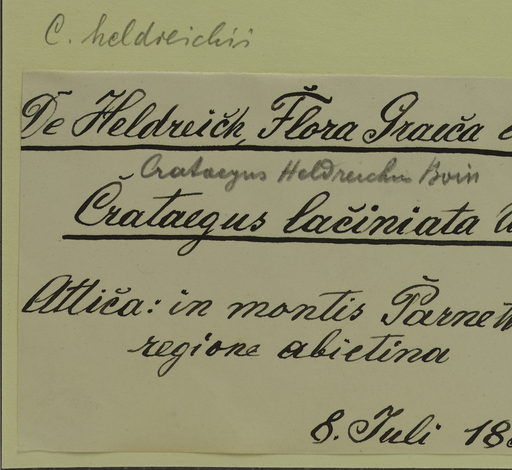 C. heldreichii
De Heldreich, Flora Graeca
Crataegus Heldreichii Boiss
Crataegus laciniata
Attica: in montis Parneth
regione abietina
8. Juli 18